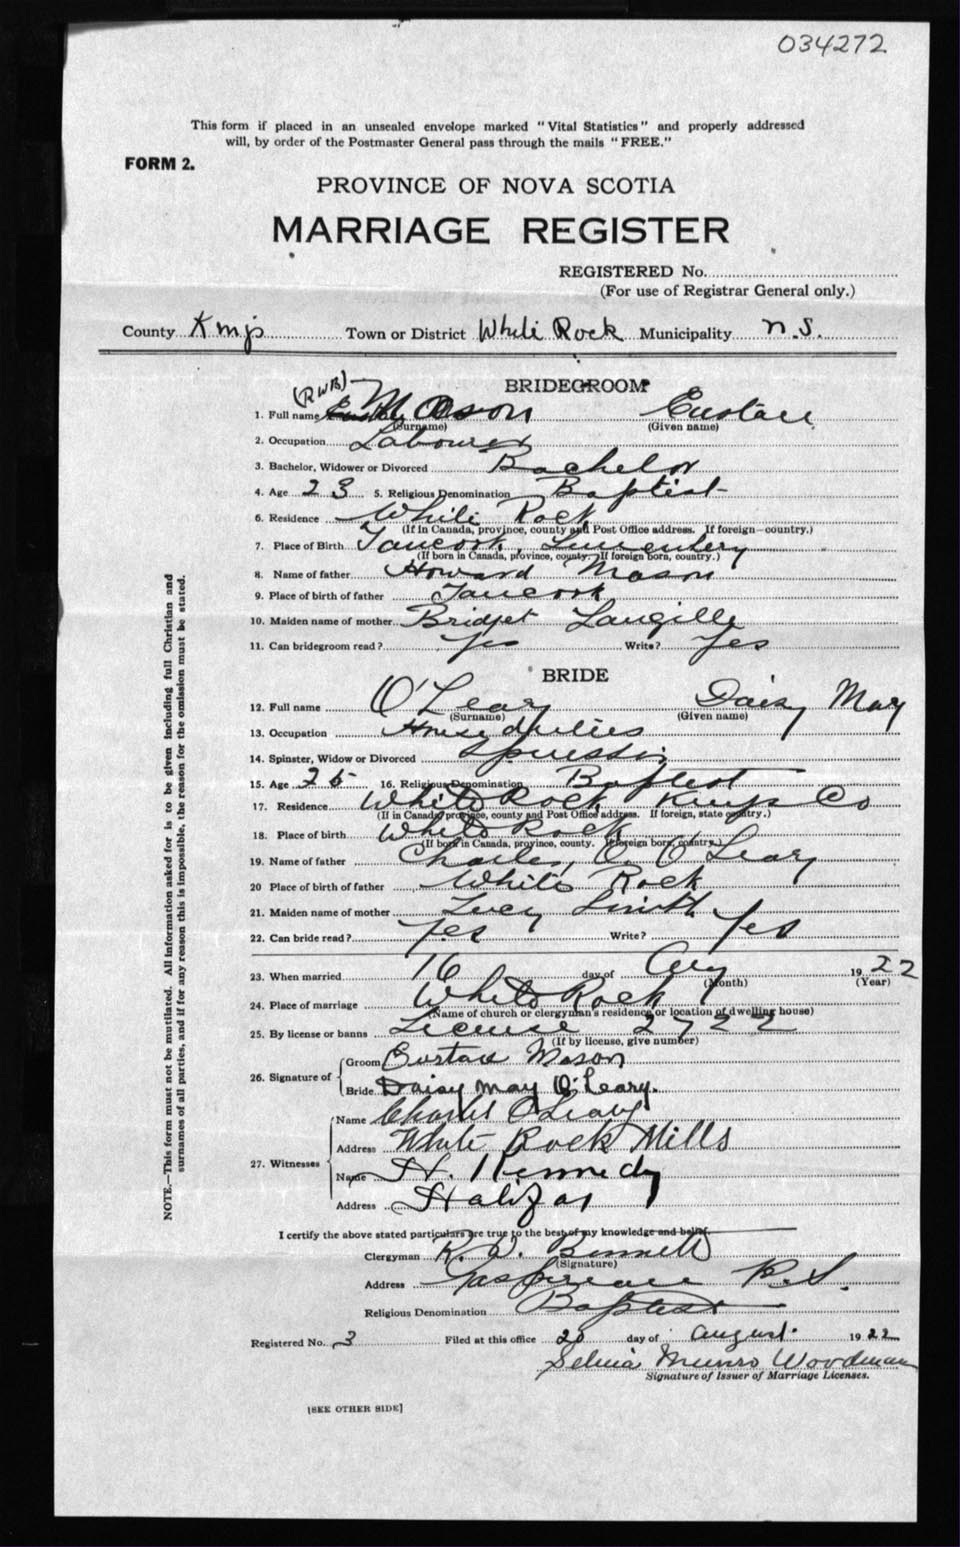 034272
This form if placed in an unsealed envelope marked "Vital Statistics" and properly addressed
will, by order of the Postmaster General pass through the mails "FREE."
FORM 2.
PROVINCE OF NOVA SCOTIA
MARRIAGE REGISTER
REGISTERED No.
(For use of Registrar General only.)
County Kings Town or District White Rock Municipality N.S.
BRIDEGROOM
(RWB)
1. Full name Mason Eustace
(Surname) (Given name)
2. Occupation Labourer
3. Bachelor, Widower or Divorced Bachelor
4. Age 23 5. Religious Denomination Baptist
6. Residence White Rock
(If in Canada, province, county and Post Office address. If foreign—country.)
7. Place of Birth Tancook, Lunenburg
(If born in Canada, province, county. If foreign born, country.)
8. Name of father Howard Mason
9. Place of birth of father Tancook
10. Maiden name of mother Bridget Langille
11. Can bridegroom read? Yes Write? Yes
BRIDE
12. Full name O'Leary Daisy May
(Surname) (Given name)
13. Occupation House duties
14. Spinster, Widow or Divorced Spinster
15. Age 25 16. Religious Denomination Baptist
17. Residence White Rock Kings Co
(If in Canada, province, county and Post Office address. If foreign, state country.)
18. Place of birth White Rock
(If born in Canada, province, county. If foreign born, country.)
19. Name of father Charles O. O'Leary
20 Place of birth of father White Rock
21. Maiden name of mother Lucy Smith
22. Can bride read? Yes Write? Yes
23. When married 16 day of Aug 1922
(Month) (Year)
24. Place of marriage White Rock
(Name of church or clergyman's residence or location of dwelling house)
25. By license or banns License 2722
(If by license, give number)
26. Signature of Groom Eustace Mason
Bride Daisy May O'Leary.
27. Witnesses Name Charles O'Leary
Address White Rock Mills
Name H. Kennedy
Address Halifax
I certify the above stated particulars are true to the best of my knowledge and belief.
Clergyman R. W. Bennett
(Signature)
Address Gaspereau N.S.
Religious Denomination Baptist
Registered No. 3 Filed at this office 20 day of August 1922
Selina Munro Woodman
Signature of Issuer of Marriage Licenses.
[SEE OTHER SIDE]
NOTE.—This form must not be mutilated. All information asked for is to be given including full Christian and
surnames of all parties, and if for any reason this is impossible, the reason for the omission must be stated.